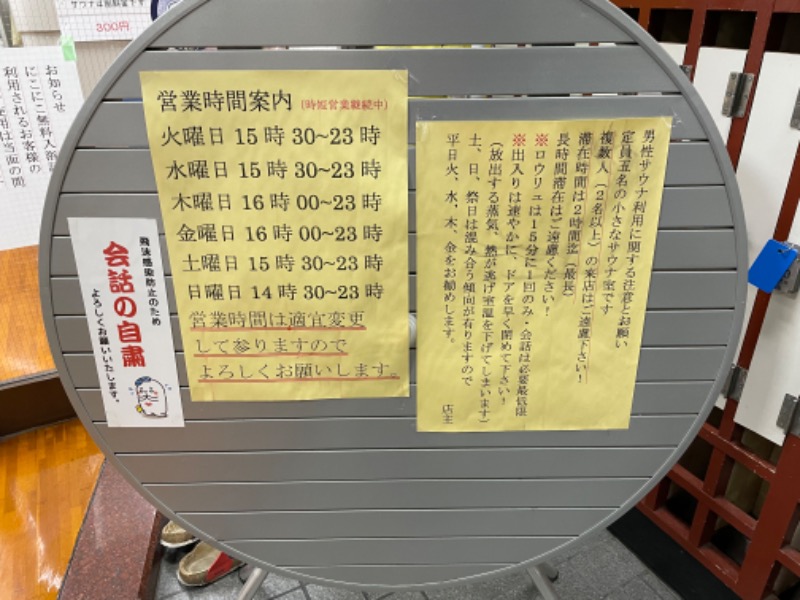 サウナは別料金です
300円
お知らせ
にこにこ無料入浴
利用されるお客様の
営業時間案内 (時短営業継続中)
火曜日 15時30~23時
水曜日 15時30~23時
木曜日 16時00~23時
金曜日 16時00~23時
土曜日 15時30~23時
日曜日 14時30~23時
営業時間は適宜変更
して参りますので
よろしくお願いします。
飛沫感染防止のため
会話の自粛
よろしくお願いいたします。
男性サウナ利用に関する注意とお願い
定員五名の小さなサウナ室です
複数人(2名以上)の来店はご遠慮下さい!
滞在時間は2時間迄(最長)
長時間滞在はご遠慮ください!
※ロウリュは15分に1回のみ・会話は必要最低限
※出入りは速やかに、ドアを早く閉めて下さい!
(放出する蒸気、熱が逃げ室温を下げてしまいます)
土、日、祭日は混み合う傾向が有りますので
平日火、水、木、金をお勧めします。
店主